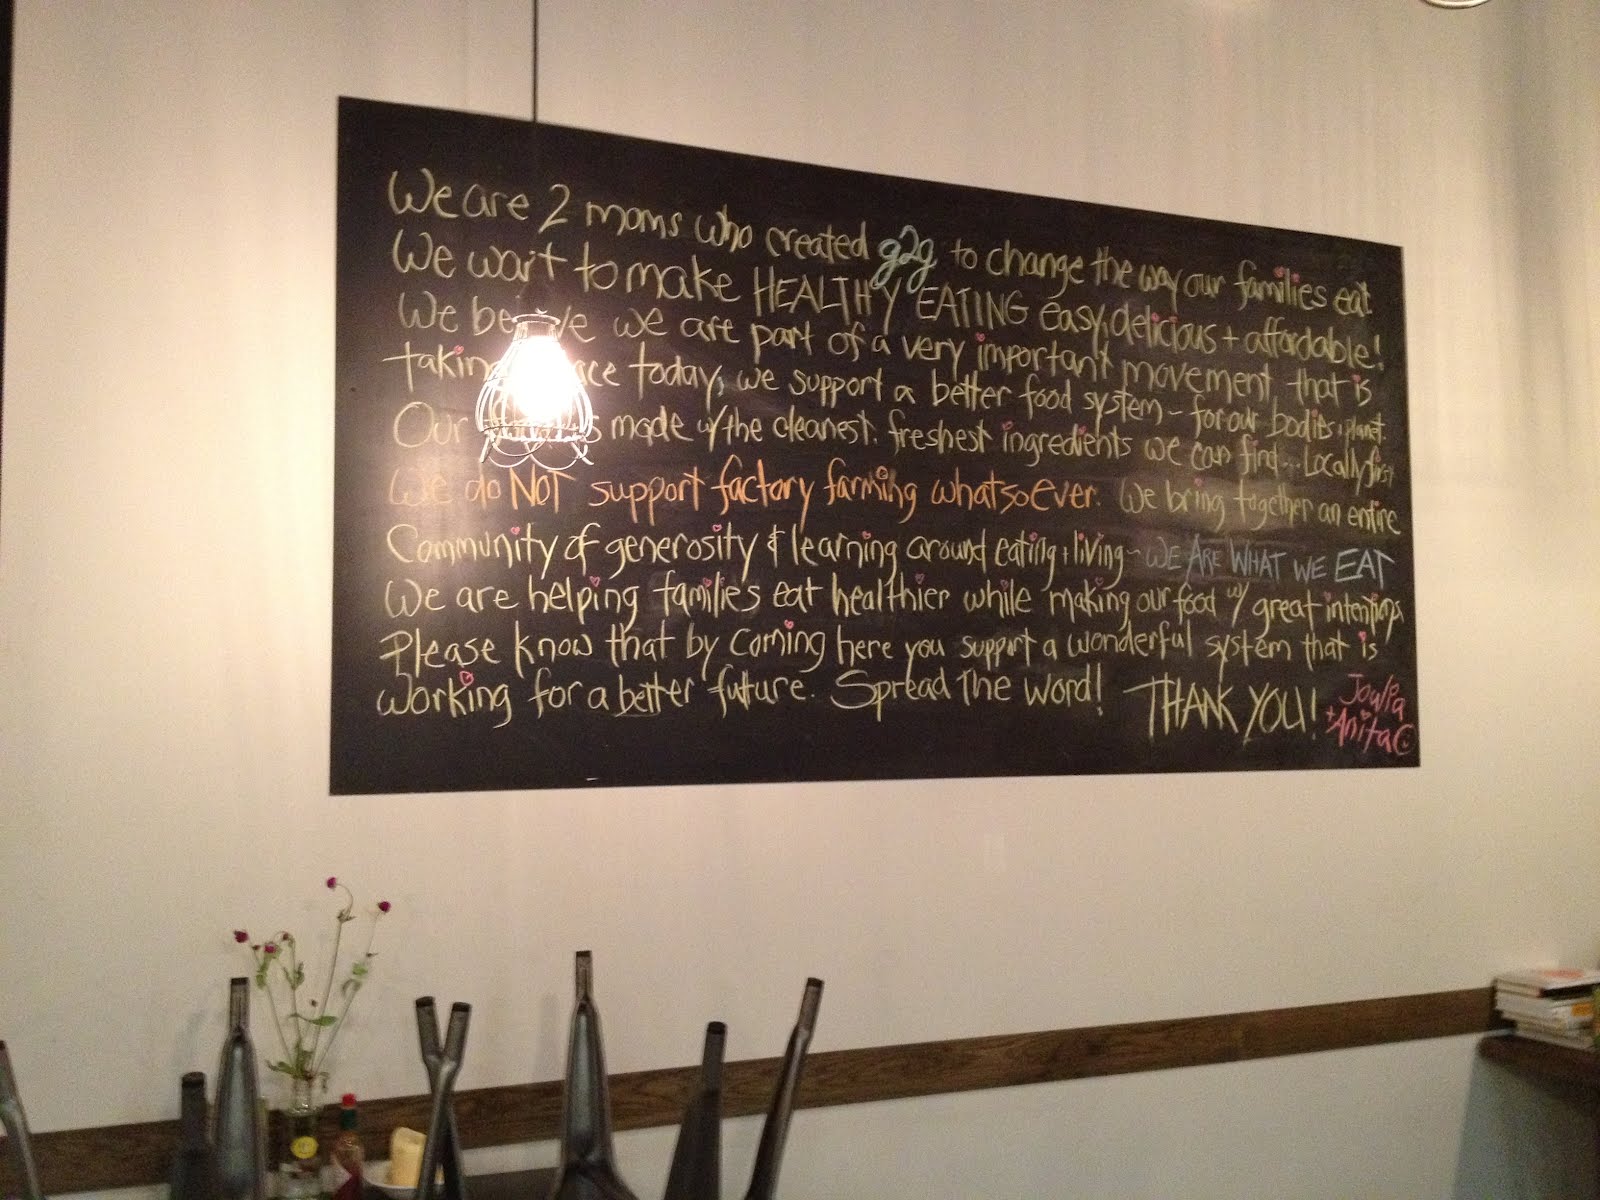 We are 2 moms who created g2g to change the way our families eat.
We want to make HEALTHY EATING easy, delicious + affordable!
We we are part of a very important movement that is
today, we support a better food system ~ for our bodies + planet.
Our made w/ the cleanest. freshest ingredients we can find... Locally first
We do NOT support factory farming whatsoever. We bring together an entire
Community of generosity & learning around eating + living ~ WE ARE WHAT WE EAT
We are helping families eat healthier while making our food w/ great intentions
Please know that by coming here you support a wonderful system that is
working for a better future. Spread the word! THANK YOU!
+ Anita